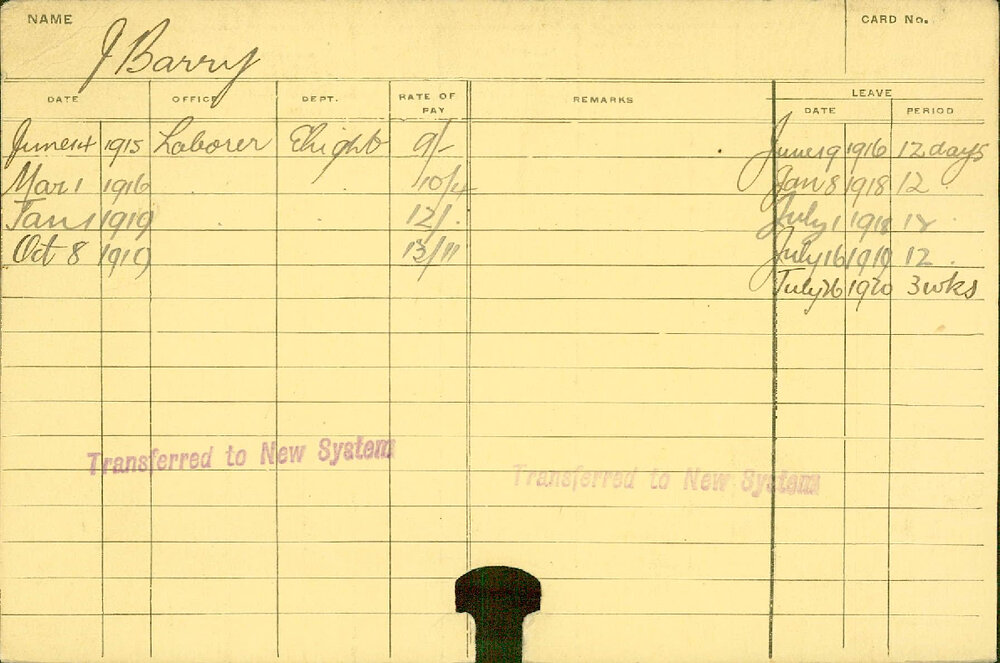 NAME
CARD No.
J Barry
DATE OFFICE DEPT. RATE OF PAY REMARKS LEAVE
DATE PERIOD
June 14 1915 Laborer 9/- June 19 1916 12 days
Mar 1 1916 10/4 Jan 8 1918 12
Jan 1 1919 12/. July 1 1918 12
Oct 8 1919 13/11 July 16 1919 12
July 26 1920 3 wks
Transferred to New System
Transferred to New System